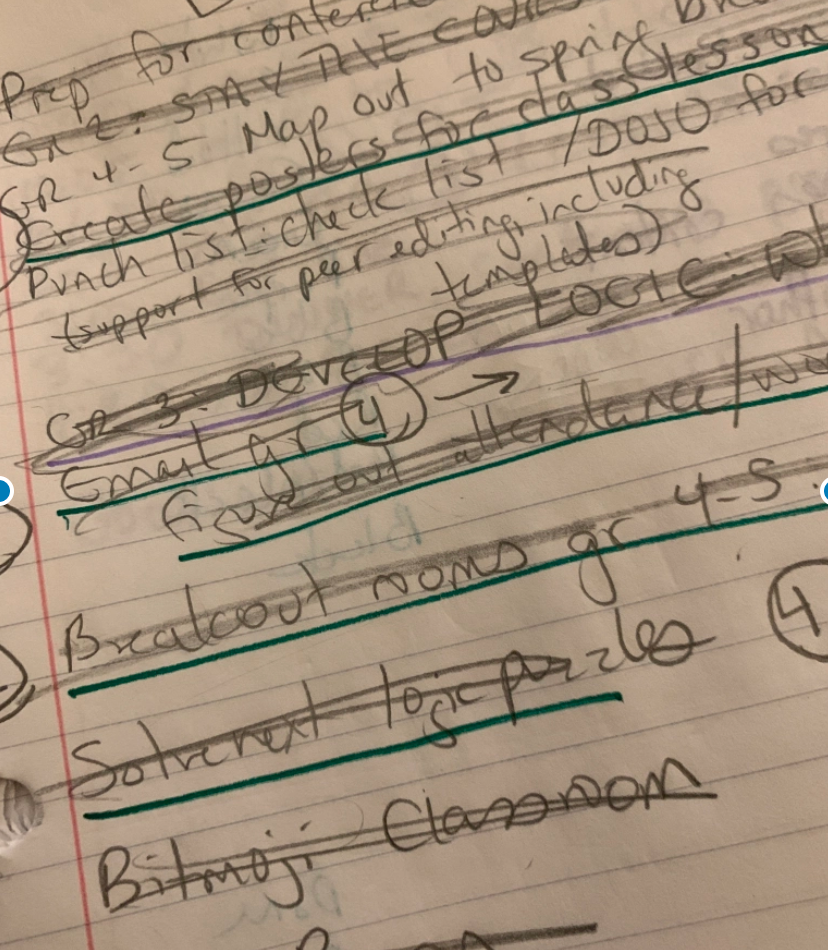 Prep for conferen
Gr 2: SMYTHE
GR 4-5 Map out to spring br
Create posters for class lesson
Punch list: check list /DOJO for
(support for peer editing, including
templates)
Gr 3: DEVELOP LOGIC: wh
Email gr 4 →
figure out attendance/wo
Breakout rooms gr 4-5.
4
Solve next logic puzzles
Bitmoji Classroom